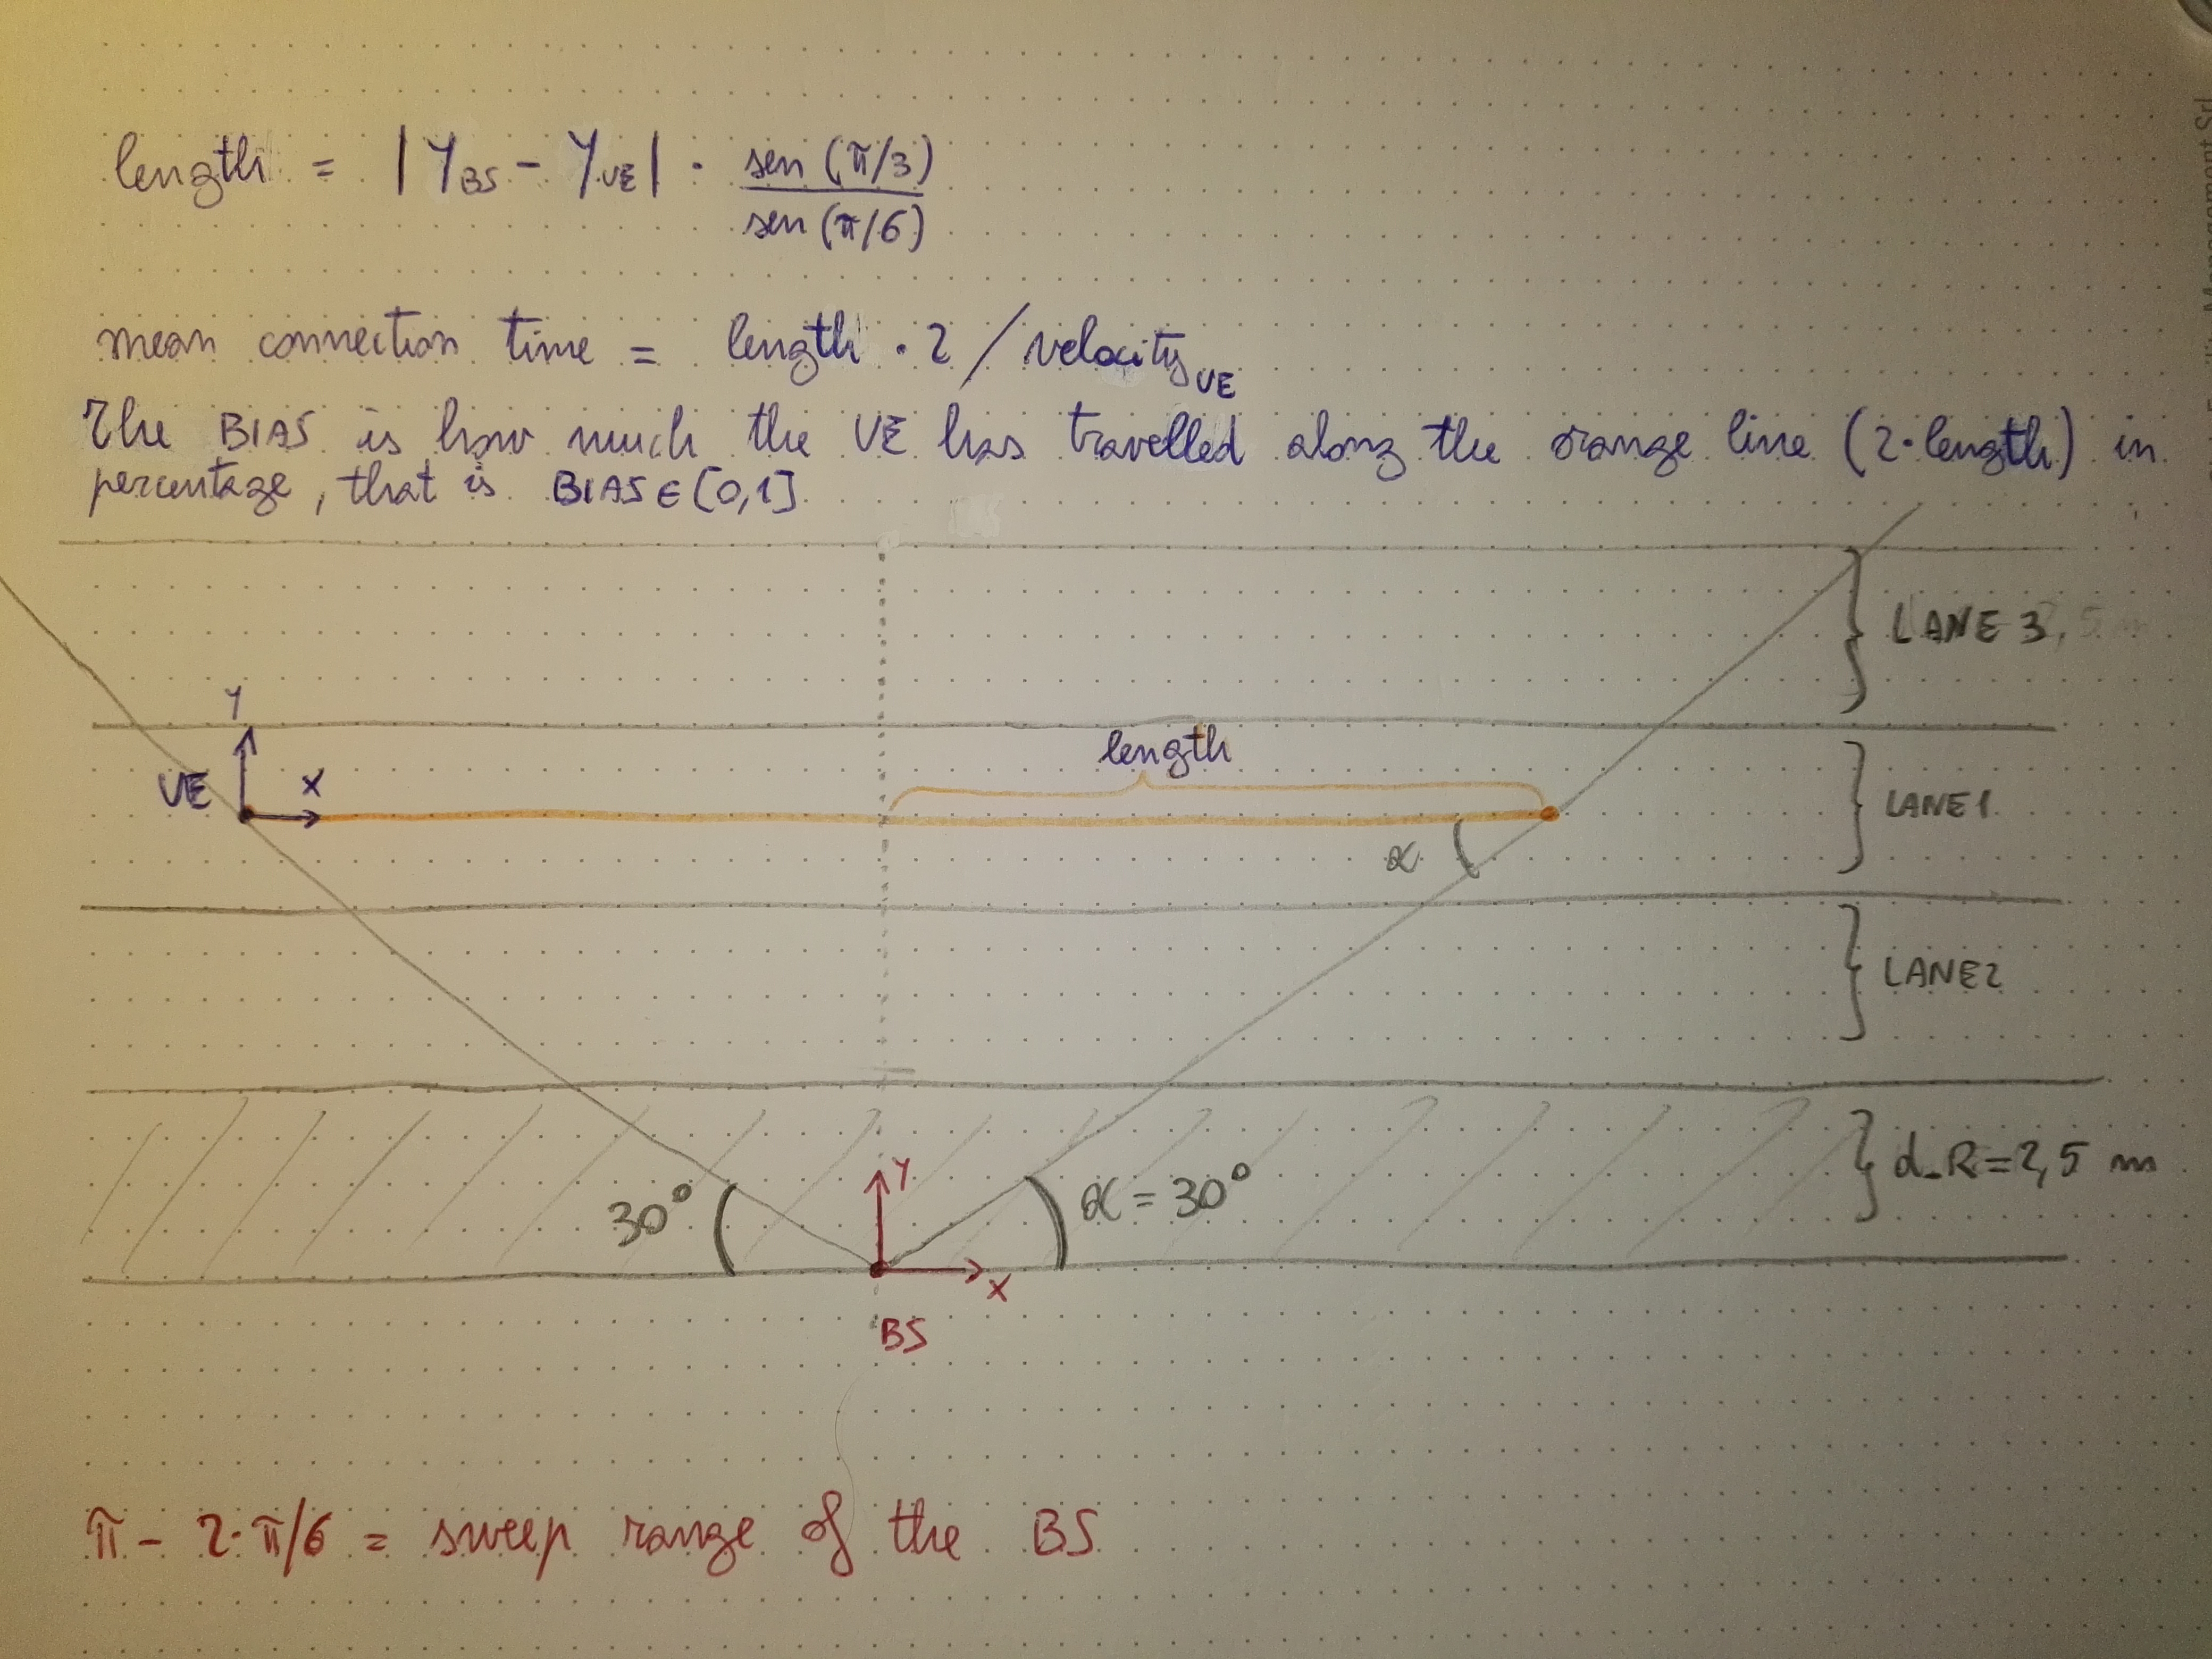 length = |Y_BS - Y_VE| · sen (π/3) / sen (π/6)
mean connection time = length · 2 / velocity_VE
The BIAS is how much the VE has travelled along the orange line (2·length) in
percentage, that is BIAS ∈ [0,1]
LANE 3
Y
length
VE
X
LANE 1
α
LANE 2
d_R = 2,5 m
Y
30°
α = 30°
X
BS
π - 2·π/6 = sweep range of the BS